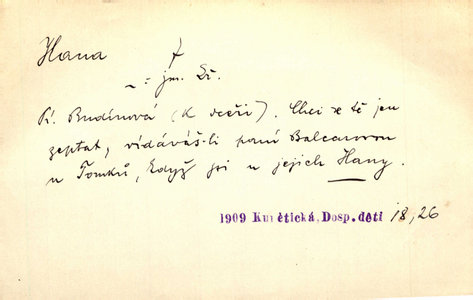 Hana f
~ = jm. Ž.
Pí. Budínová (k dceři). Chci se tě jen
zeptat, vídáváš-li paní Balcarovou
u Tomků, když jsi u jejich Hany.
1909 Kunětická, Dosp. děti 18, 26